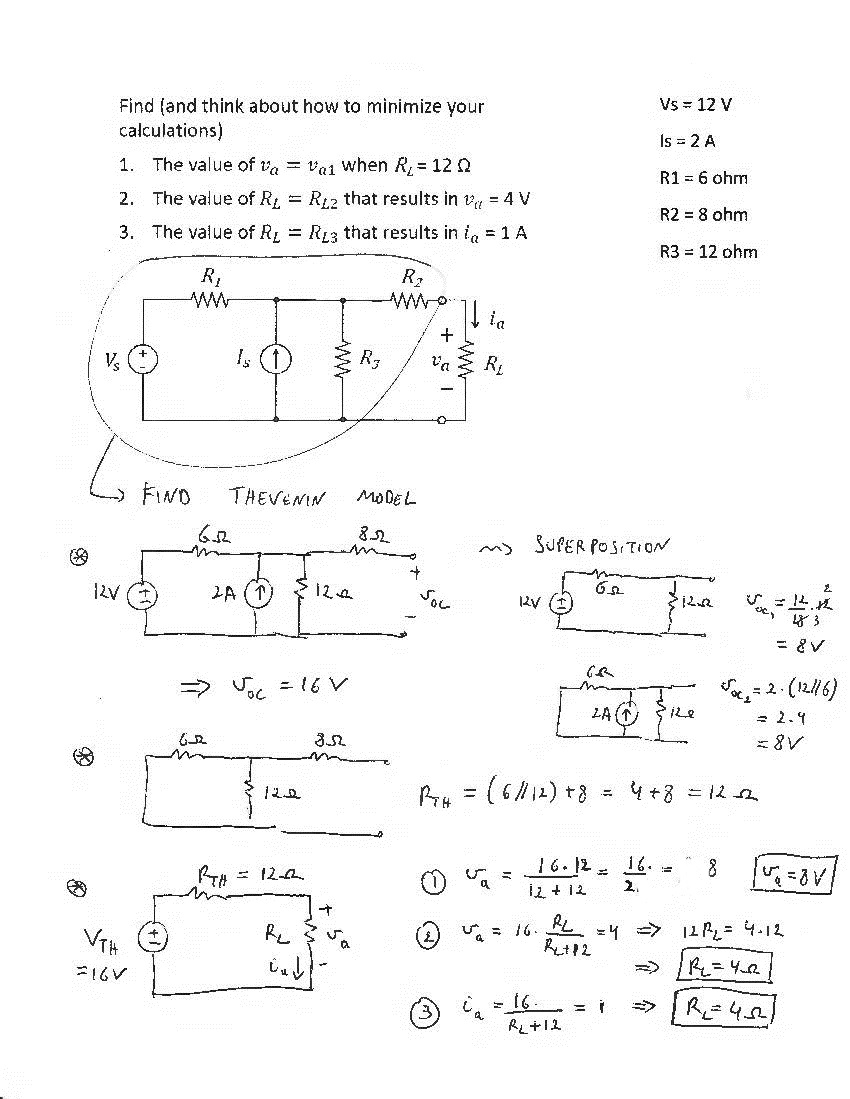 Find (and think about how to minimize your
calculations)
1. The value of vₐ = vₐ₁ when R_L = 12 Ω
2. The value of R_L = R_L2 that results in vₐ = 4 V
3. The value of R_L = R_L3 that results in iₐ = 1 A
Vs = 12 V
Is = 2 A
R1 = 6 ohm
R2 = 8 ohm
R3 = 12 ohm
R₁ R₂
iₐ
Vₛ + − Iₛ R₃ + vₐ − R_L
FIND THEVENIN MODEL
6Ω 8Ω
12V + − 2A 12Ω + v_OC −
⇒ v_OC = 16 V
SUPERPOSITION
12V + − 6Ω 12Ω
v_OC₁ = 12/18 · 12 2 3
= 8V
6Ω
2A 12Ω
v_OC₂ = 2 · (12//6)
= 2.4
= 8V
6Ω 8Ω
12Ω
R_TH = (6//12) + 8 = 4 + 8 = 12 Ω
R_TH = 12Ω
V_TH = 16V + − R_L + vₐ −
iₐ
① vₐ = 16.12/12 + 12 = 16./2. = 8 vₐ = 8V
② vₐ = 16. R_L/R_L+12 = 4 ⇒ 12R_L = 4.12
⇒ R_L = 4Ω
③ iₐ = 16./R_L+12 = 1 ⇒ R_L = 4Ω